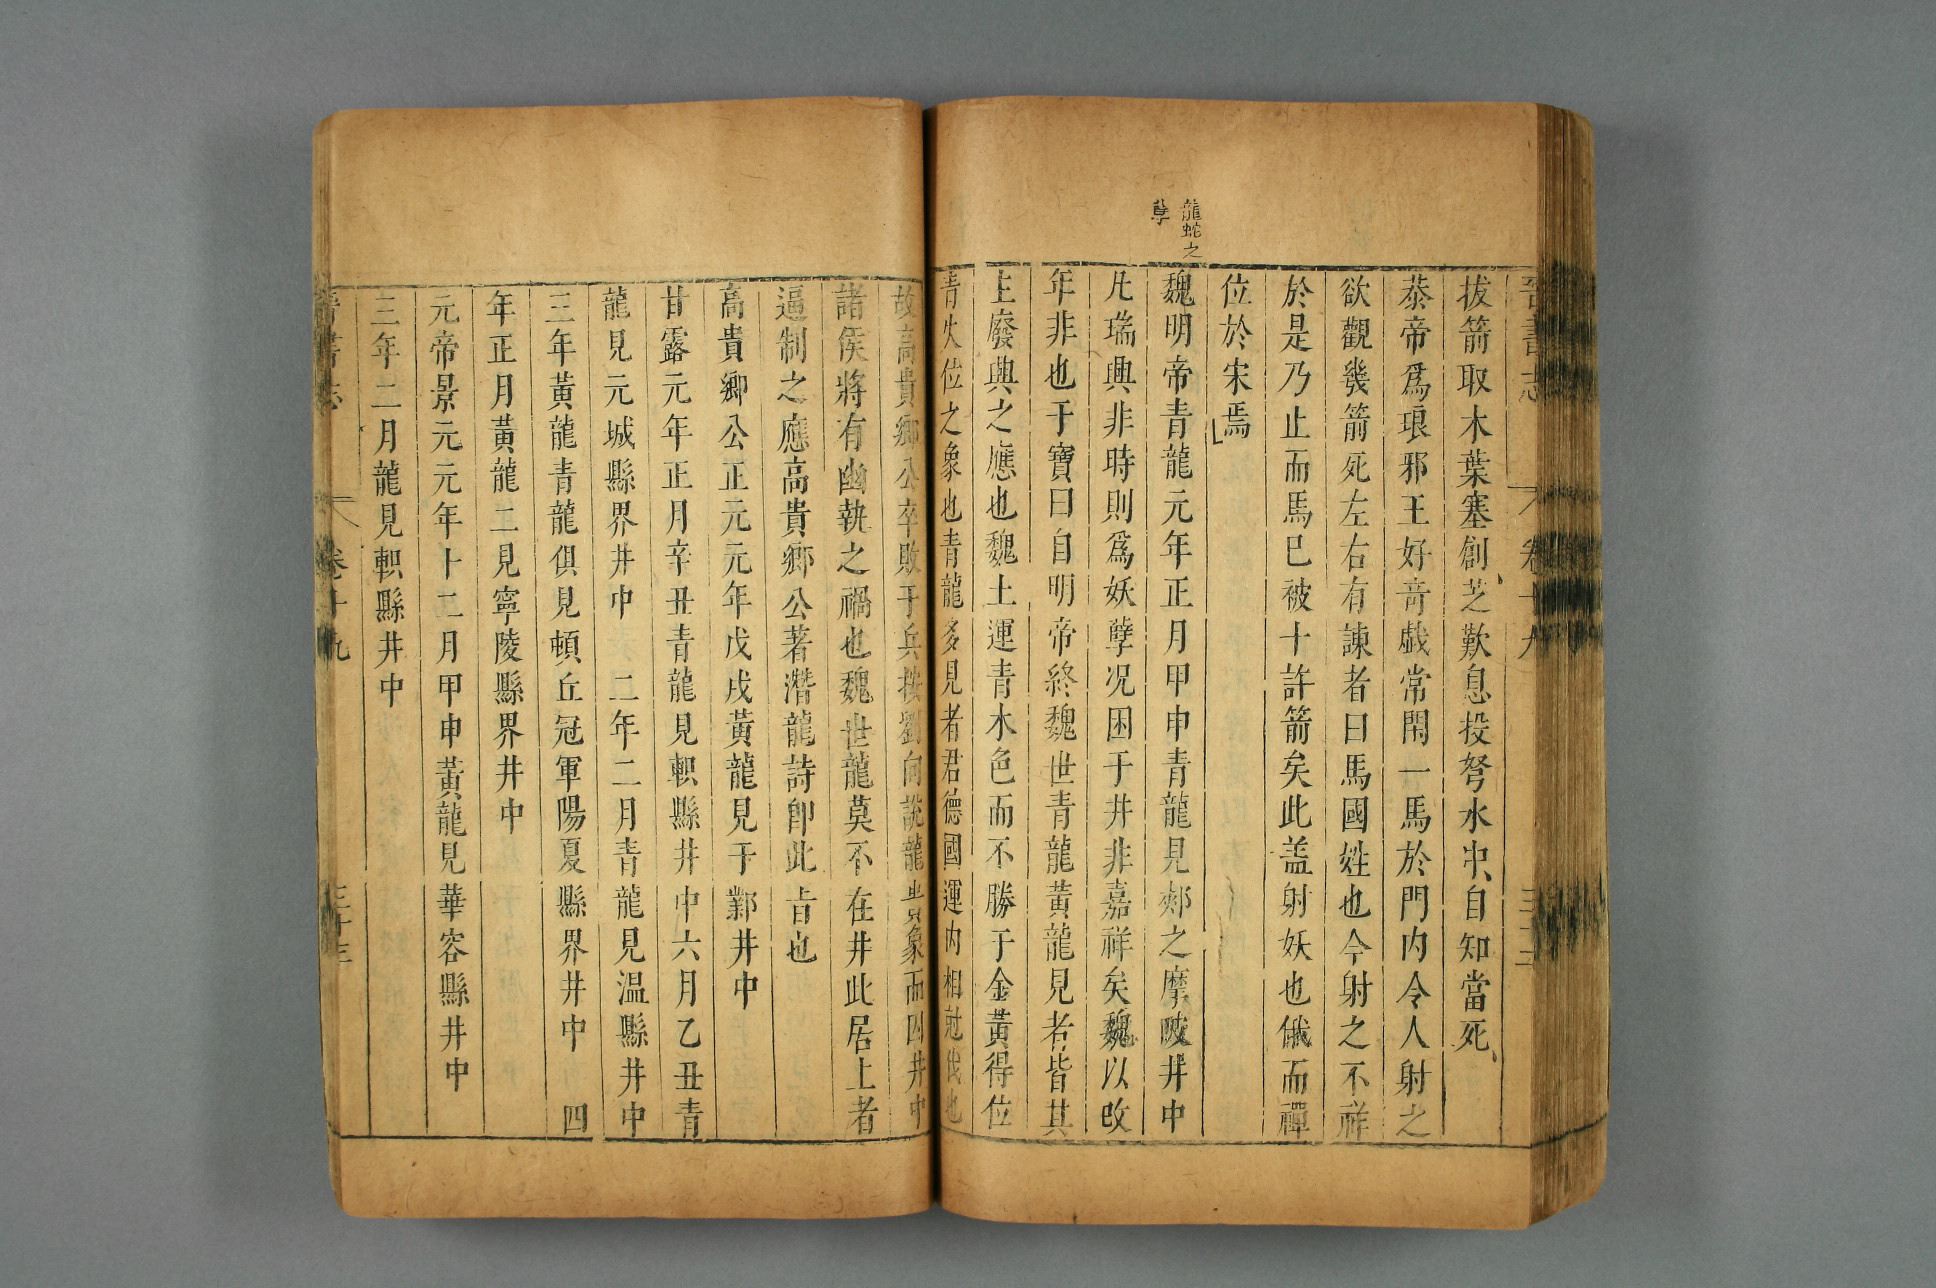 龍蛇之
孽
拔箭取木葉塞創芝歎息投弩水中自知當死
恭帝爲琅邪王好竒戱常閑一馬於門内令人射之
欲觀幾箭死左右有諫者曰馬國姓也今射之不祥
於是乃止而馬巳被十許箭矣此盖射妖也俄而禪
位於宋焉
魏明帝青龍元年正月甲申青龍見郟之摩陂井中
凡瑞興非時則爲妖孽况困于井非嘉祥矣魏以改
年非也于寶曰自明帝終魏世青龍黃龍見者皆其
主廢興之應也魏土運青木色而不勝于金黃得位
青火位之象也青龍多見者君德國運内相尅伐也
故高貴鄉公卒敗于兵按劉向說龍貴象而困井中
諸侯將有幽執之禍也魏世龍莫不在井此居上者
逼制之應高貴鄉公著潛龍詩卽此旨也
高貴鄉公正元元年戊戌黃龍見于鄴井中
甘露元年正月辛丑青龍見軹縣井中六月乙丑青
龍見元城縣界井中 二年二月青龍見温縣井中
三年黃龍青龍俱見頓丘冠軍陽夏縣界井中 四
年正月黃龍二見寧陵縣界井中
元帝景元元年十二月甲申黃龍見華容縣井中
三年二月龍見軹縣井中
晉書志 卷十九